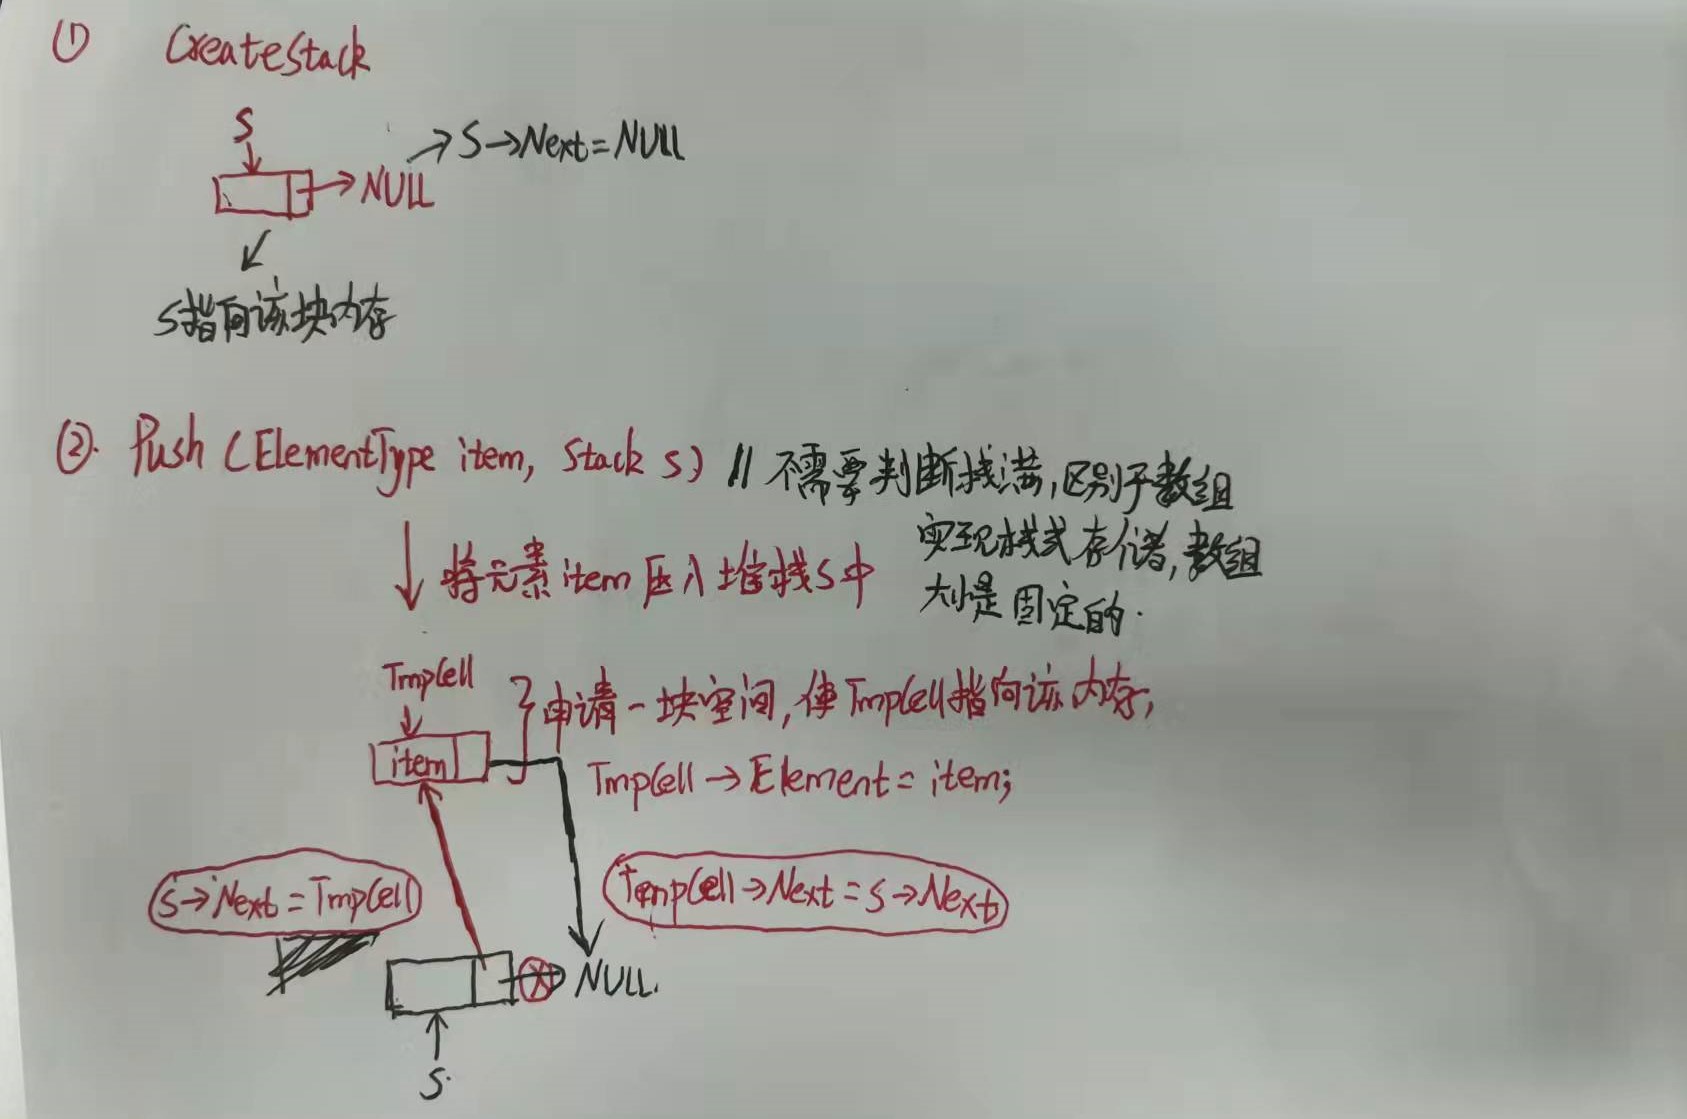 ① CreateStack
S
NULL → S→Next=NULL
S指向该块内存
②. Push (ElementType item, Stack S) // 不需要判断栈满,区别于数组
实现栈式存储,数组
大小是固定的.
将元素item压入堆栈S中
TmpCell
item
申请一块空间,使TmpCell指向该内存;
TmpCell→Element=item;
S→Next=TmpCell
TempCell→Next=S→Next
NULL.
S.